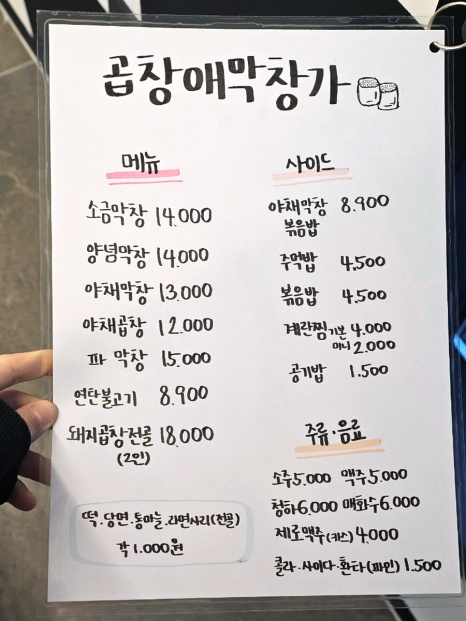 곱창애막창가
메뉴
소금막창 14.000
양념막창 14.000
야채막창 13.000
야채곱창 12.000
파 막창 15.000
연탄불고기 8.900
돼지곱창전골 18,000
(2인)
떡.당면.통마늘.라면사리(전골)
각 1.000원
사이드
야채막창 8.900
볶음밥
주먹밥 4,500
볶음밥 4,500
계란찜 기본 4.000
미니 2.000
공기밥 1.500
주류.음료
소주 5.000 맥주 5.000
청하 6.000 매화수 6.000
제로맥주(카스) 4.000
콜라.사이다.환타(파인) 1.500